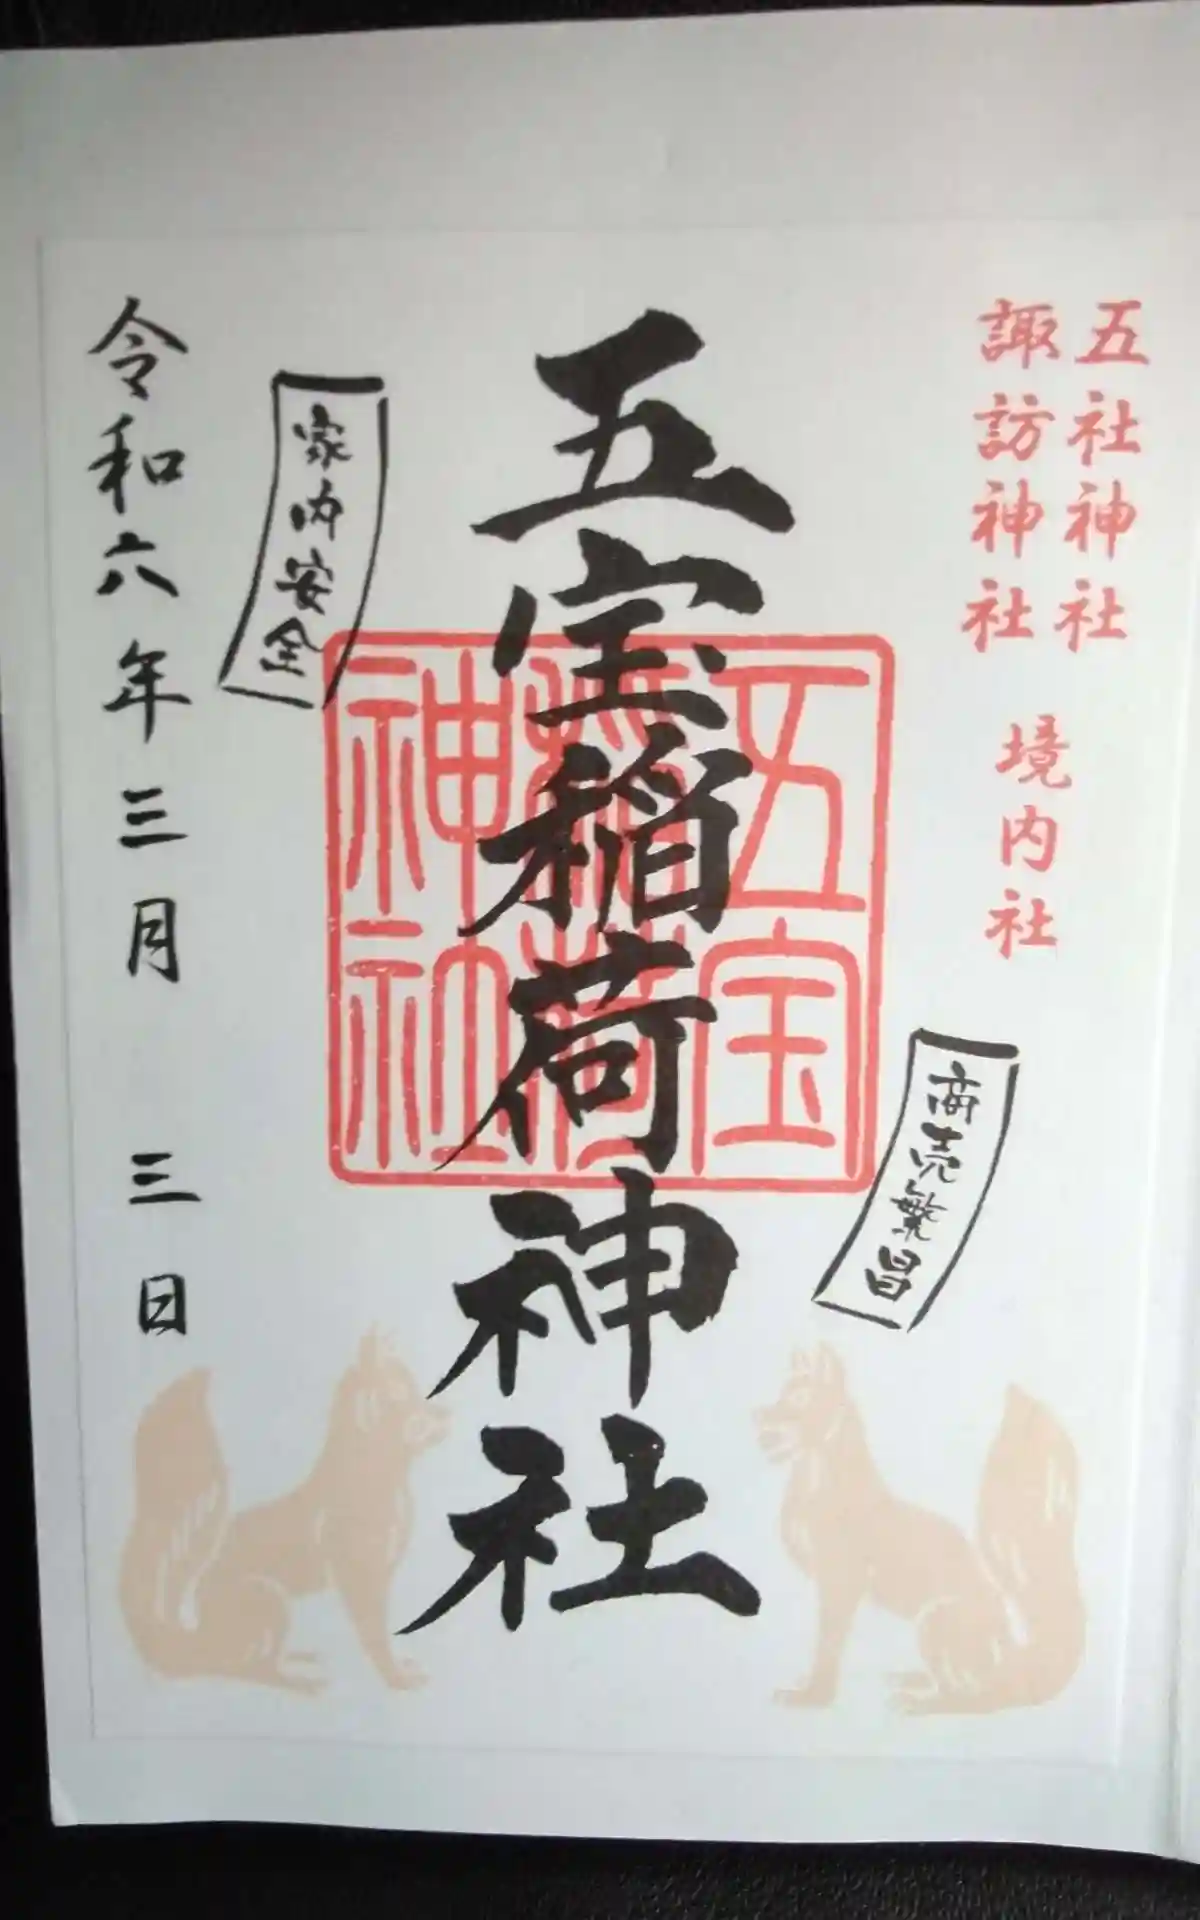 五社神社
諏訪神社
境内社
商売繁昌
五宝稲荷神社
五宝
稲荷
神社
家内安全
令和六年三月三日